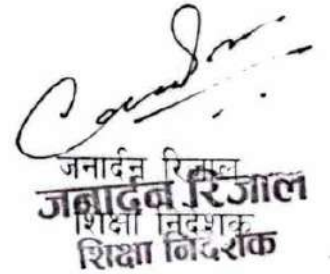 जनार्दन रिजाल
जनार्दन रिजाल
शिक्षा निर्देशक
शिक्षा निर्देशक